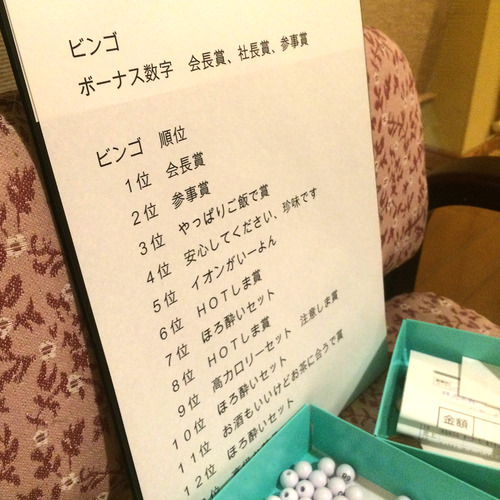 ビンゴ
ボーナス数字　会長賞、社長賞、参事賞
ビンゴ　順位
1位　会長賞
2位　参事賞
3位　やっぱりご飯で賞
4位　安心してください、珍味です
5位　イオンがいーよん
6位　ＨＯＴしま賞
7位　ほろ酔いセット
8位　ＨＯＴしま賞
9位　高カロリーセット　注意しま賞
10位　ほろ酔いセット
11位　お酒もいいけどお茶に合うで賞
12位　ほろ酔いセット
金額